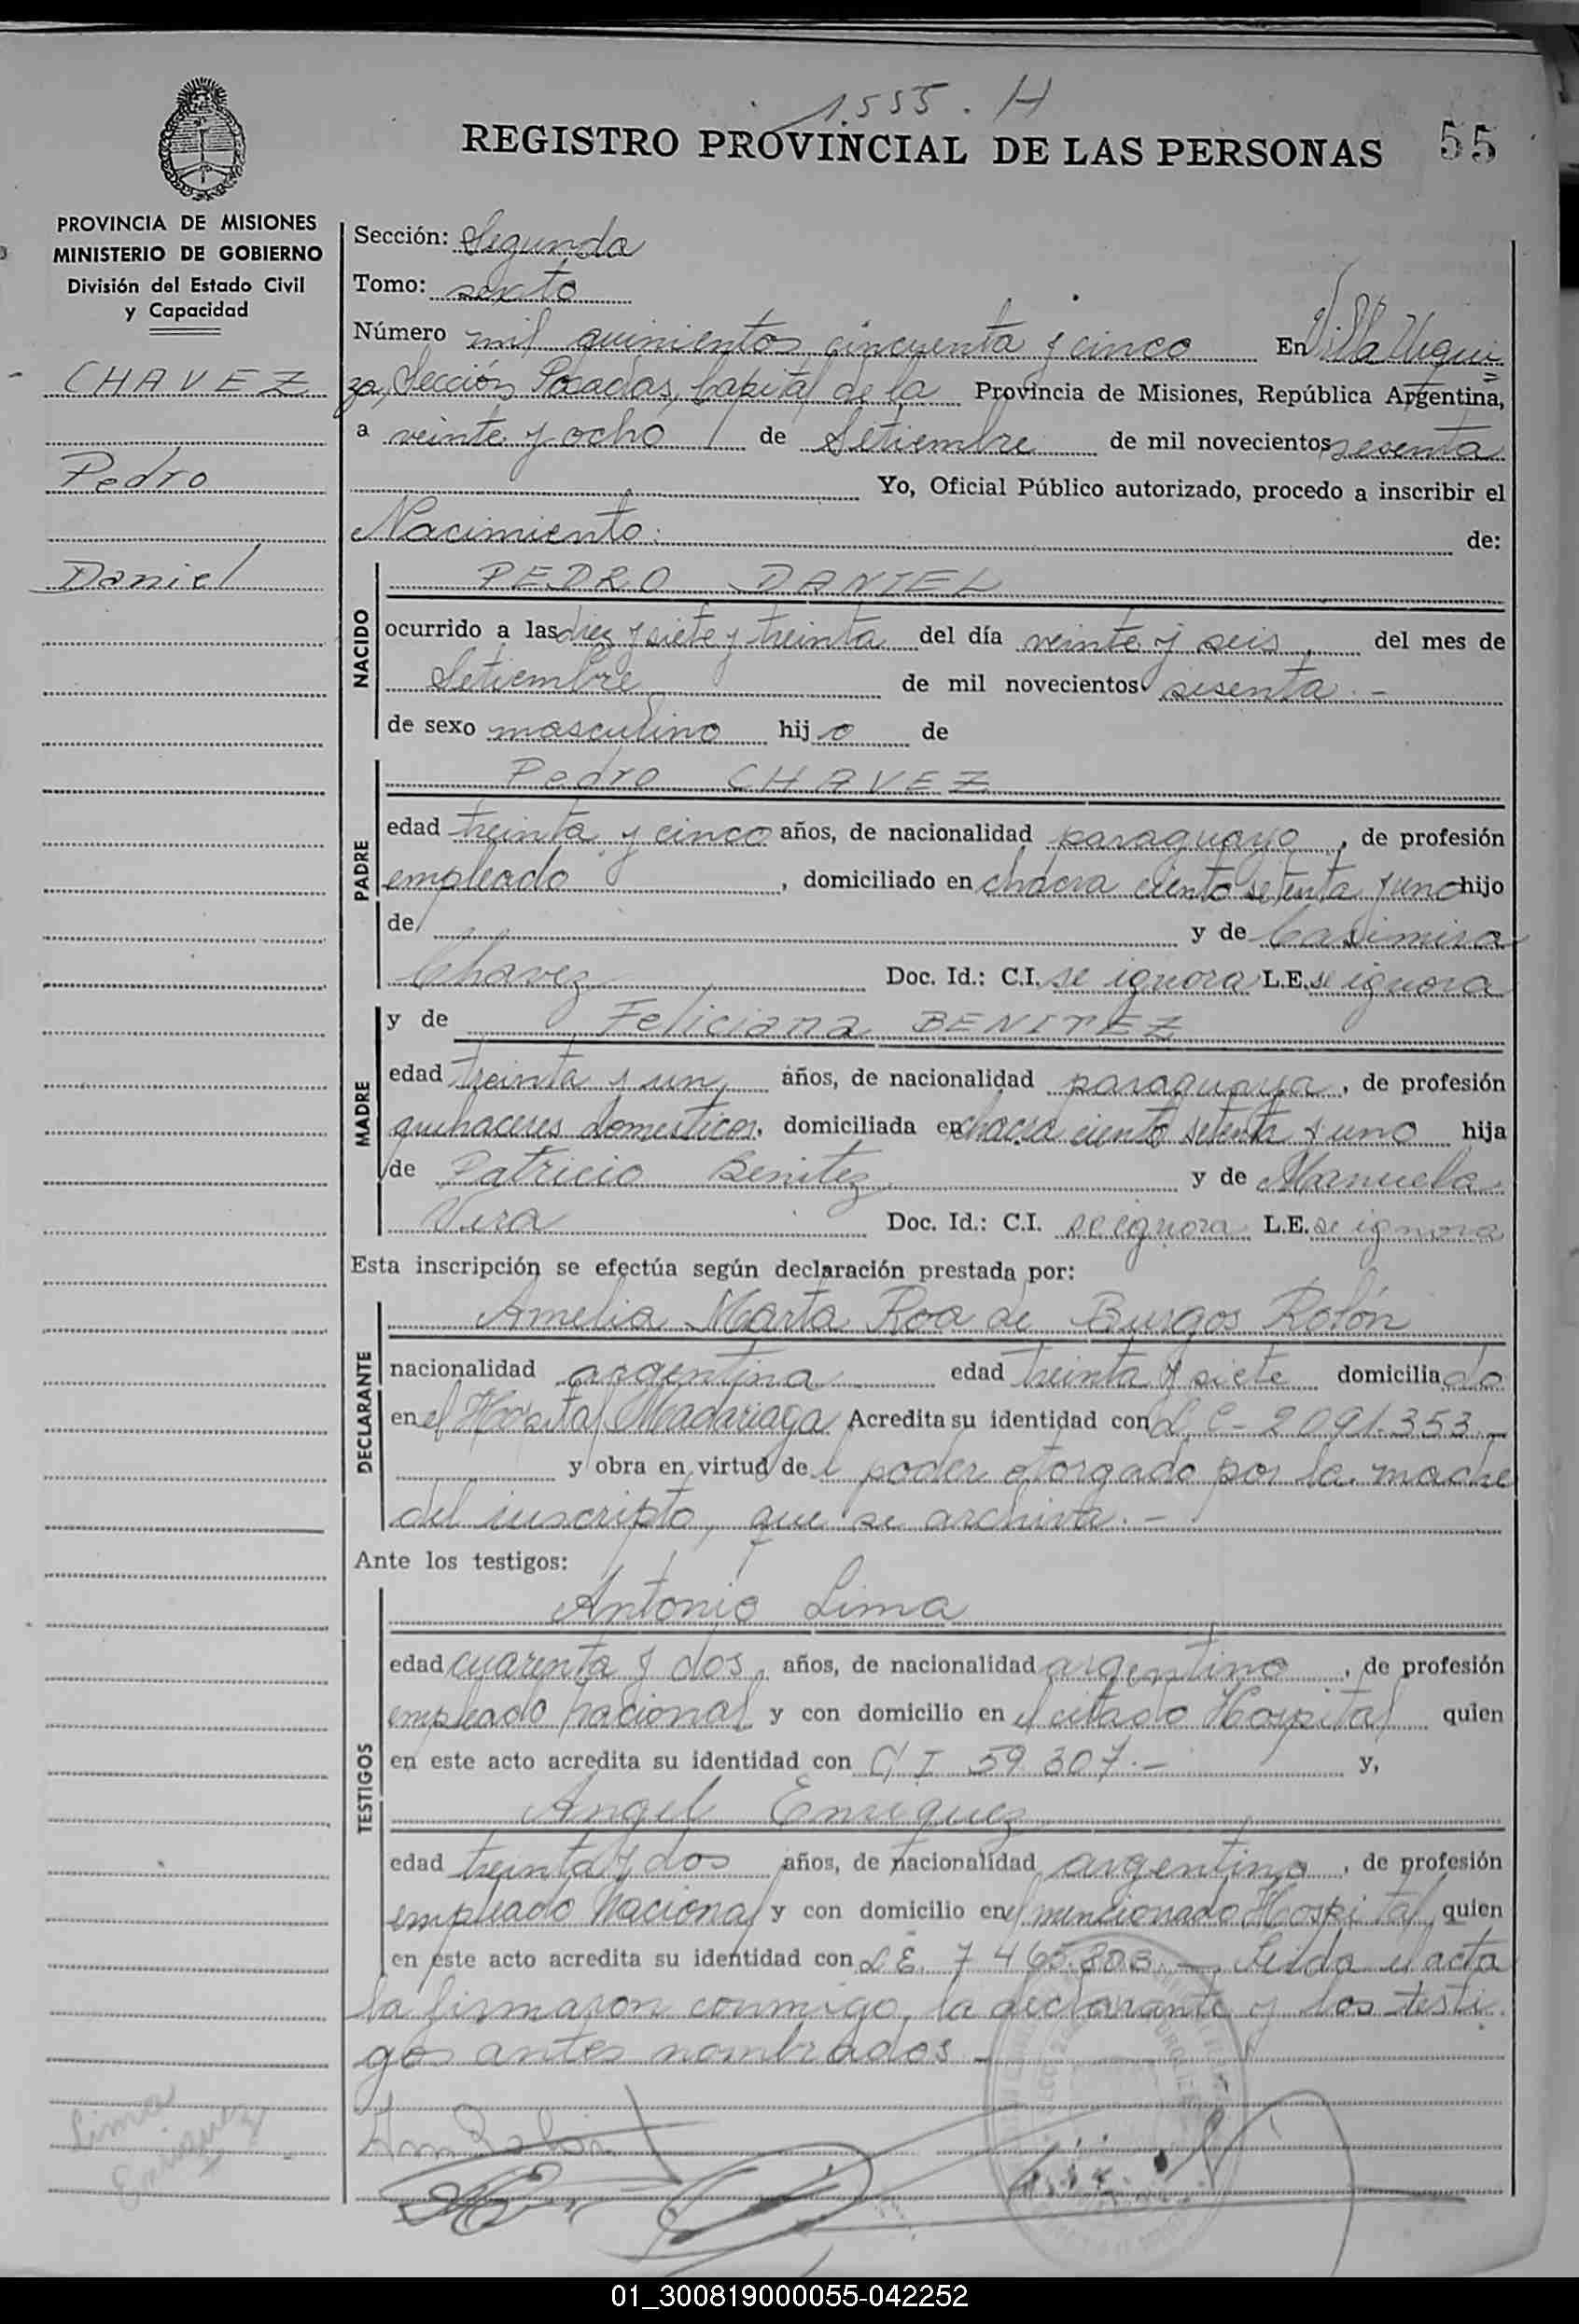 1.555. H
REGISTRO PROVINCIAL DE LAS PERSONAS 55
PROVINCIA DE MISIONES
MINISTERIO DE GOBIERNO
División del Estado Civil
y Capacidad
CHAVEZ
Pedro
Daniel
Sección: Segunda
Tomo: sexto
Número mil quinientos cincuenta y cinco En Villa Urqui=
za, Sección Posadas, Capital de la Provincia de Misiones, República Argentina,
a veinte y ocho de Setiembre de mil novecientos sesenta
Yo, Oficial Público autorizado, procedo a inscribir el
Nacimiento: de:
NACIDO
PEDRO DANIEL
ocurrido a las diez y siete y treinta del día veinte y seis, del mes de
Setiembre de mil novecientos sesenta.-
de sexo masculino hijo de
PADRE
Pedro CHAVEZ
edad treinta y cinco años, de nacionalidad paraguayo, de profesión
empleado, domiciliado en chacra ciento setenta y uno hijo
de y de Casimira
Chavez Doc. Id.: C.I. se ignora L.E. se ignora
MADRE
y de Feliciana BENITEZ
edad treinta y un, años, de nacionalidad paraguaya, de profesión
quehaceres domesticos, domiciliada en chacra ciento setenta y uno hija
de Patricio Benitez y de Manuela
Vera Doc. Id.: C.I. se ignora L.E. se ignora
Esta inscripción se efectúa según declaración prestada por:
DECLARANTE
Amelia Marta Roa de Burgos Rolón
nacionalidad argentina edad treinta y siete domiciliado
en el Hospital Madariaga Acredita su identidad con L C - 2091.353.-
y obra en virtud del poder otorgado por la madre
del inscripto, que se archiva.-
Ante los testigos:
TESTIGOS
Antonio Lima
edad cuarenta y dos, años, de nacionalidad argentino, de profesión
empleado nacional y con domicilio en el citado Hospital quien
en este acto acredita su identidad con C I 59 307.- y,
Angel Enriquez
edad treinta y dos años, de nacionalidad argentino, de profesión
empleado Nacional y con domicilio en el mencionado Hospital quien
en este acto acredita su identidad con L E. 7 465.808.- Leida el acta
la firmaron conmigo, la declarante y los testi
gos antes nombrados -
Lima
Enriquez
01_300819000055-042252